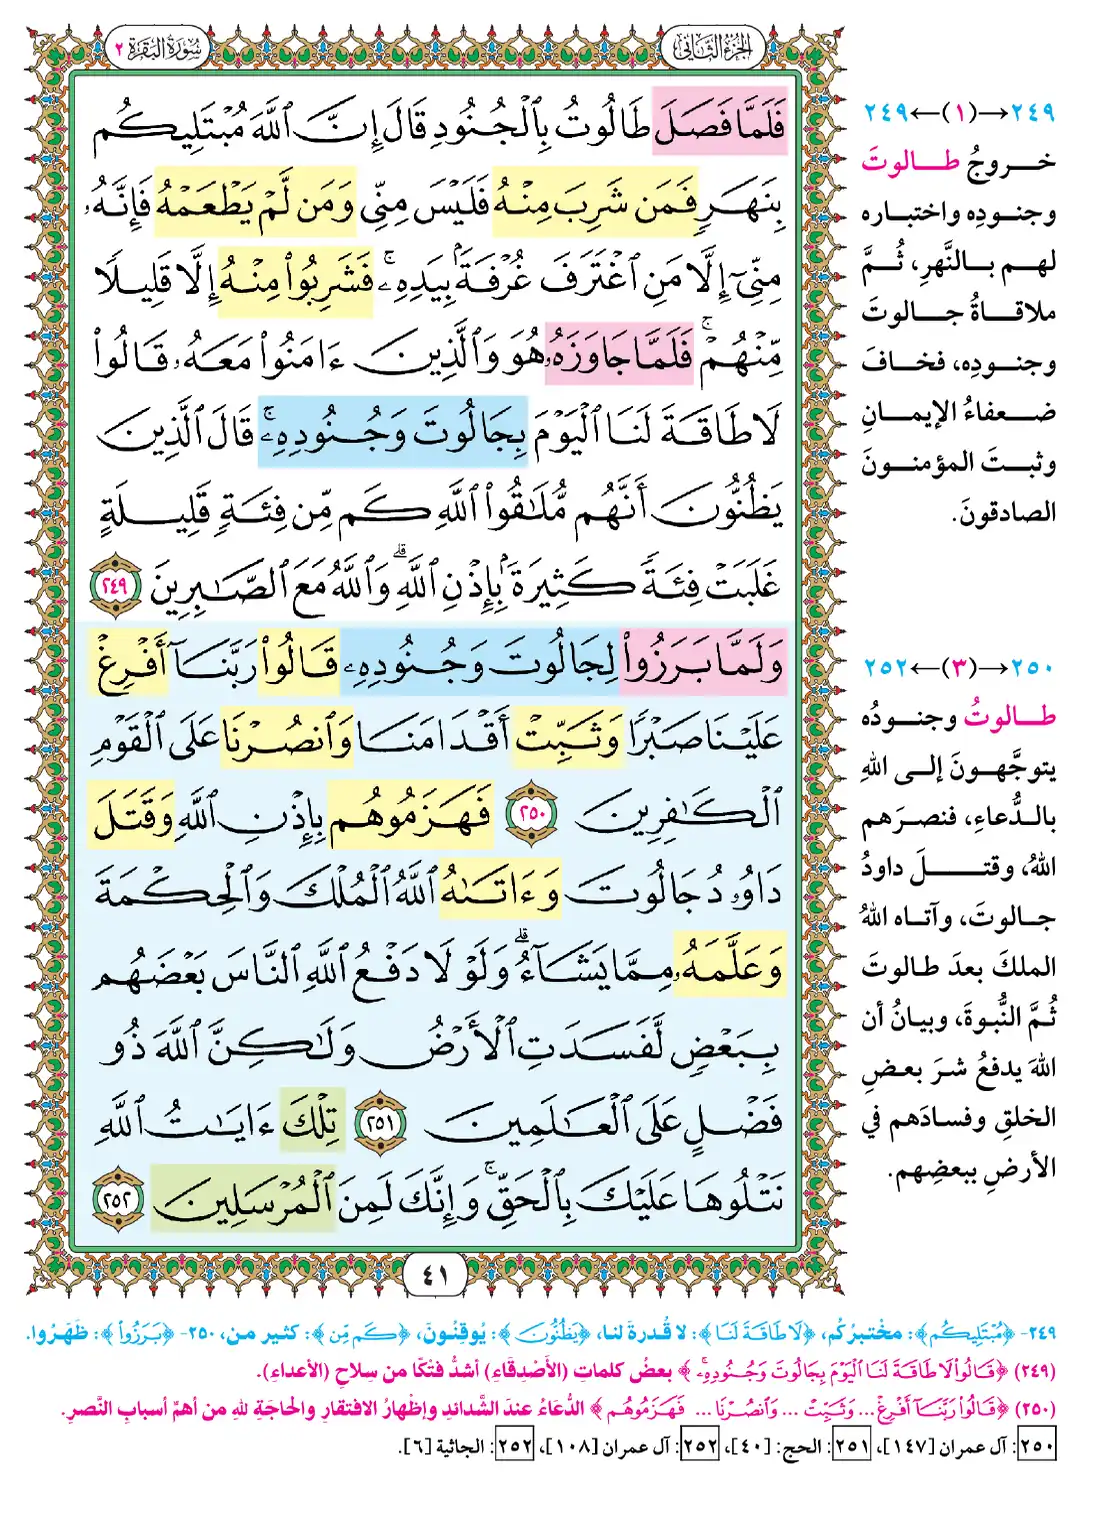 الجزء الثاني
سورة البقرة ٢
فَلَمَّا فَصَلَ طَالُوتُ بِٱلۡجُنُودِ قَالَ إِنَّ ٱللَّهَ مُبۡتَلِيكُم
بِنَهَرٖ فَمَن شَرِبَ مِنۡهُ فَلَيۡسَ مِنِّي وَمَن لَّمۡ يَطۡعَمۡهُ فَإِنَّهُۥ
مِنِّيٓ إِلَّا مَنِ ٱغۡتَرَفَ غُرۡفَةَۢ بِيَدِهِۦۚ فَشَرِبُواْ مِنۡهُ إِلَّا قَلِيلٗا
مِّنۡهُمۡۚ فَلَمَّا جَاوَزَهُۥ هُوَ وَٱلَّذِينَ ءَامَنُواْ مَعَهُۥ قَالُواْ
لَا طَاقَةَ لَنَا ٱلۡيَوۡمَ بِجَالُوتَ وَجُنُودِهِۦۚ قَالَ ٱلَّذِينَ
يَظُنُّونَ أَنَّهُم مُّلَٰقُواْ ٱللَّهِ كَم مِّن فِئَةٖ قَلِيلَةٍ
غَلَبَتۡ فِئَةٗ كَثِيرَةَۢ بِإِذۡنِ ٱللَّهِۗ وَٱللَّهُ مَعَ ٱلصَّٰبِرِينَ ٢٤٩
وَلَمَّا بَرَزُواْ لِجَالُوتَ وَجُنُودِهِۦ قَالُواْ رَبَّنَآ أَفۡرِغۡ
عَلَيۡنَا صَبۡرٗا وَثَبِّتۡ أَقۡدَامَنَا وَٱنصُرۡنَا عَلَى ٱلۡقَوۡمِ
ٱلۡكَٰفِرِينَ ٢٥٠ فَهَزَمُوهُم بِإِذۡنِ ٱللَّهِ وَقَتَلَ
دَاوُۥدُ جَالُوتَ وَءَاتَىٰهُ ٱللَّهُ ٱلۡمُلۡكَ وَٱلۡحِكۡمَةَ
وَعَلَّمَهُۥ مِمَّا يَشَآءُۗ وَلَوۡلَا دَفۡعُ ٱللَّهِ ٱلنَّاسَ بَعۡضَهُم
بِبَعۡضٖ لَّفَسَدَتِ ٱلۡأَرۡضُ وَلَٰكِنَّ ٱللَّهَ ذُو
فَضۡلٍ عَلَى ٱلۡعَٰلَمِينَ ٢٥١ تِلۡكَ ءَايَٰتُ ٱللَّهِ
نَتۡلُوهَا عَلَيۡكَ بِٱلۡحَقِّۚ وَإِنَّكَ لَمِنَ ٱلۡمُرۡسَلِينَ ٢٥٢
٤١
٢٤٩→(١)←٢٤٩
خروجُ طالوتَ
وجنودِه واختباره
لهم بالنَّهرِ، ثُمَّ
ملاقاةُ جالوتَ
وجنودِه، فخافَ
ضعفاءُ الإيمانِ
وثبتَ المؤمنونَ
الصادقونَ.
٢٥٠→(٣)←٢٥٢
طالوتُ وجنودُه
يتوجَّهونَ إلى اللهِ
بالدُّعاءِ، فنصرَهم
اللهُ، وقتلَ داودُ
جالوتَ، وآتاه اللهُ
الملكَ بعدَ طالوتَ
ثُمَّ النُّبوةَ، وبيانُ أن
اللهَ يدفعُ شرَ بعضِ
الخلقِ وفسادَهم في
الأرضِ ببعضِهم.
٢٤٩- ﴿مُبۡتَلِيكُم﴾: مختبرُكُم، ﴿لَا طَاقَةَ لَنَا﴾: لا قُدرةَ لنا، ﴿يَظُنُّونَ﴾: يُوقِنُونَ، ﴿كَم مِّن﴾: كثير من، ٢٥٠- ﴿بَرَزُواْ﴾: ظَهَرُوا.
(٢٤٩) ﴿قَالُواْ لَا طَاقَةَ لَنَا ٱلۡيَوۡمَ بِجَالُوتَ وَجُنُودِهِۦۚ﴾ بعضُ كلماتِ (الأَصْدِقَاءِ) أشدُّ فتْكًا من سِلاحِ (الأعداءِ).
(٢٥٠) ﴿قَالُواْ رَبَّنَآ أَفۡرِغۡ ... وَثَبِّتۡ ... وَٱنصُرۡنَا ... فَهَزَمُوهُم﴾ الدُّعَاءُ عندَ الشَّدائدِ وإظْهارُ الافتقارِ والحَاجَةِ للهِ من أهمِّ أسبابِ النَّصرِ.
٢٥٠: آل عمران [١٤٧]، ٢٥١: الحج: [٤٠]، ٢٥٢: آل عمران [١٠٨]، ٢٥٢: الجاثية [٦].